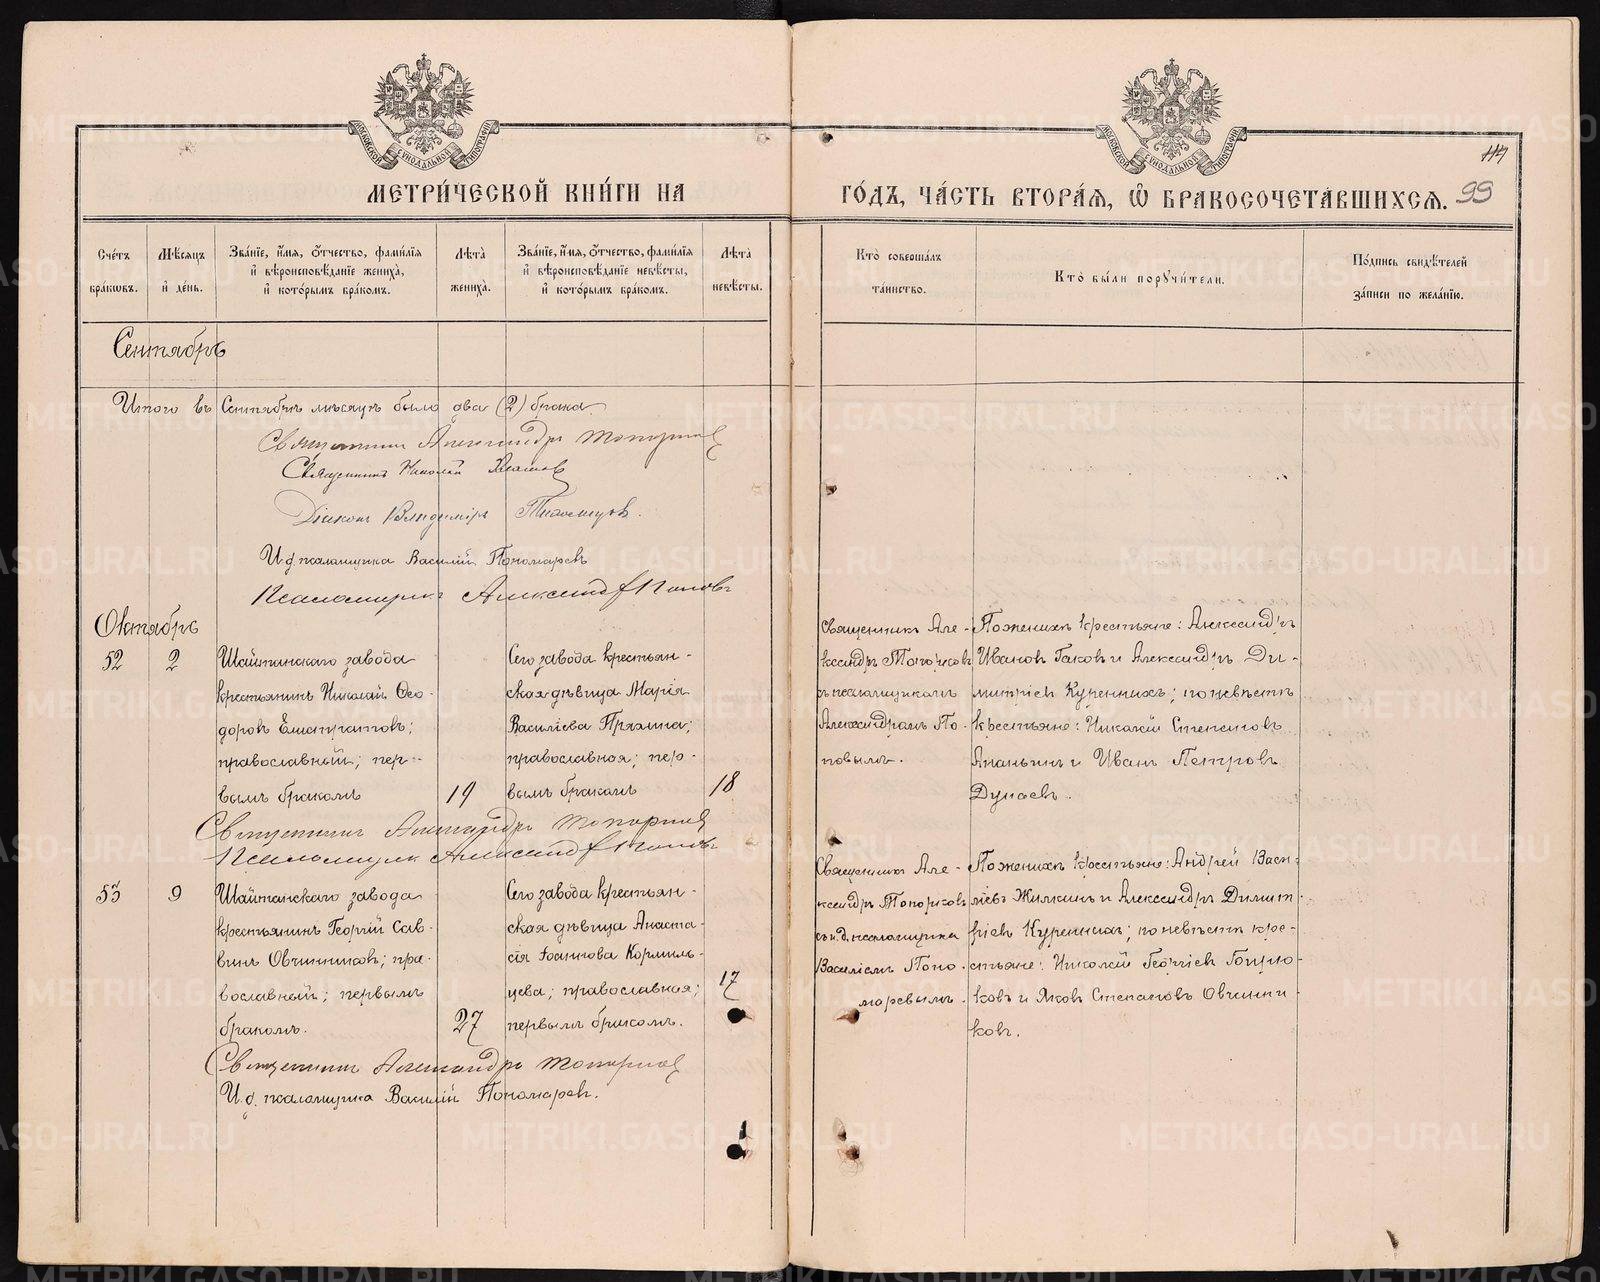 МОСКОВСКОЙ СѴНОДАЛЬНОЙ ТИПОГРАФІИ
МОСКОВСКОЙ СѴНОДАЛЬНОЙ ТИПОГРАФІИ
МЕТРИ́ЧЕСКОЙ КНИ́ГИ НА
ГО́ДЪ, ЧА́СТЬ ВТОРА́Я, Ѽ БРАКОСОЧЕТА́ВШИХСЯ.
99
Сче́тъ бра́кѡвъ.
Мѣ́сяцъ и де́нь.
Зва́ніе, и́мя, о́тчество, фами́лія и вѣроисповѣ́даніе жениха̀, и кото́рымъ бра́комъ.
Лѣ́та жениха̀.
Зва́ніе, и́мя, о́тчество, фами́лія и вѣроисповѣ́даніе невѣ́сты, и кото́рымъ бра́комъ.
Лѣ́та невѣ́сты.
Кто̀ соверша́лъ та́инство.
Кто̀ бы́ли поручи́тели.
По́дпись свидѣ́телей за́писи по жела́нію.
Сентябрь
Итого въ Сентябрѣ мѣсяцѣ было два (2) брака.
Священникъ Александръ Топорковъ
Священникъ Николай
Діаконъ Владиміръ
И. д. псаломщика Василій Пономаревъ
Псаломщикъ Александръ Поповъ
Октябрь
52
2
Шайтанскаго завода
крестьянинъ Николай Ѳео-
доровъ Елистратовъ;
православный; пер-
вымъ бракомъ
19
Сего завода крестьян-
ская дѣвица Марія
Василіева Пряхина;
православная; пер-
вымъ бракомъ
18
Священникъ Але-
ксандръ Топорковъ
съ псаломщикомъ
Александромъ По-
повымъ.
По женихѣ крестьяне: Александръ
Ивановъ Гаковъ и Александръ Ди-
митріевъ Куреннихъ; по невѣстѣ
крестьяне: Николай Степановъ
Ананьинъ и Иванъ Петровъ
Дунаевъ.
Священникъ Александръ Топорковъ
Псаломщикъ Александръ Поповъ
53
9
Шайтанскаго завода
крестьянинъ Георгій Сав-
винъ Овчинниковъ; пра-
вославный; первымъ
бракомъ.
27
Сего завода крестьян-
ская дѣвица Анаста-
сія Іоаннова Кормиль-
цева; православная;
первымъ бракомъ.
17
Священникъ Але-
ксандръ Топорковъ
съ и. д. псаломщика
Василіемъ Поно-
маревымъ.
По женихѣ крестьяне: Андрей Васи-
ліевъ Жилкинъ и Александръ Димит-
ріевъ Куреннихъ; по невѣстѣ кре-
стьяне: Николай Георгіевъ
ковъ и Яковъ Степановъ Овчинни-
ковъ.
Священникъ Александръ Топорковъ
И. д. псаломщика Василій Пономаревъ.
METRIKI.GASO-URAL.RU